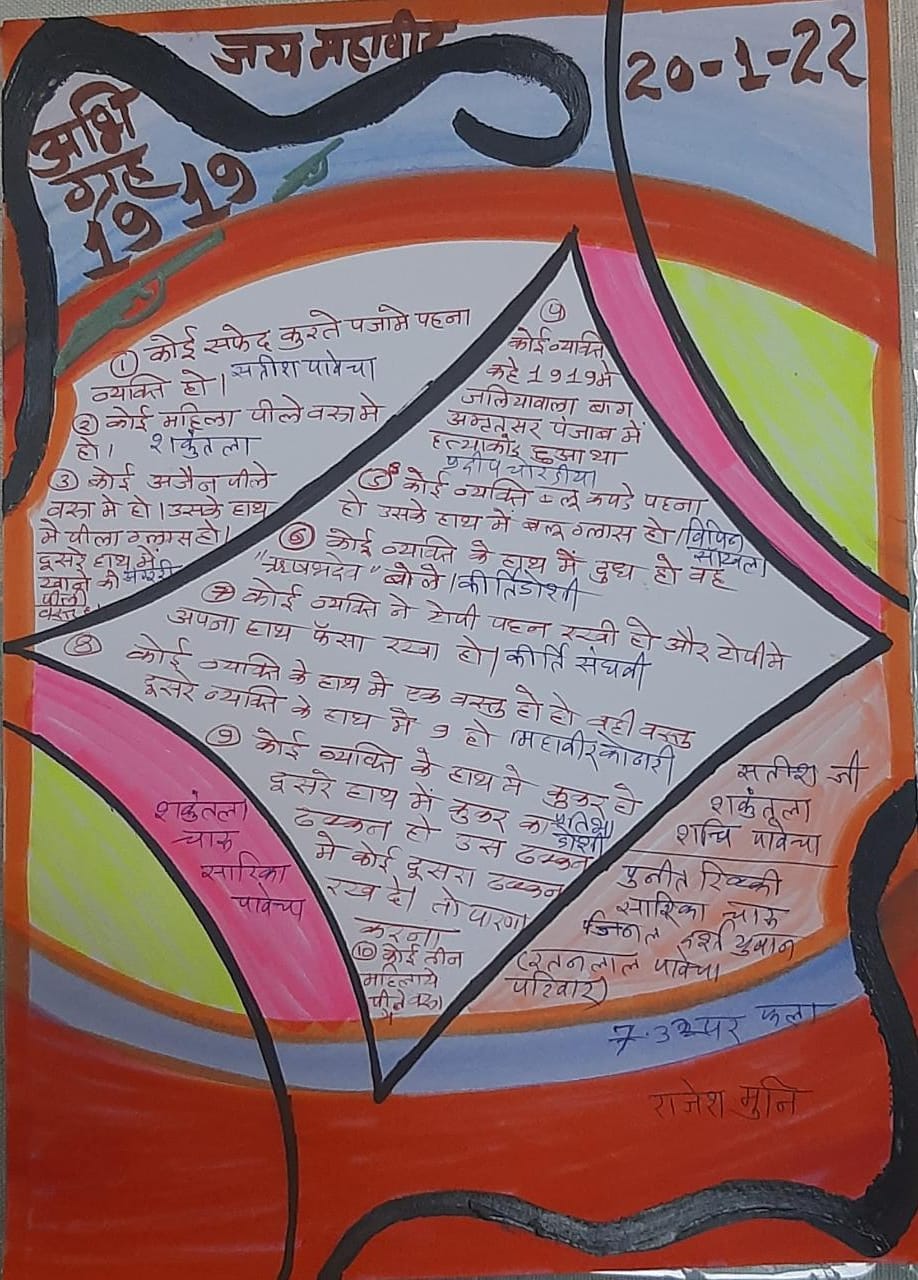 जय महावीर
20-1-22
अभि
ग्रह
1919
① कोई सफेद कुरते पजामे पहना
व्यक्ति हो। सतीश पावेचा
② कोई महिला पीले वस्त्र मे
हो। शकुंतला
③ कोई अजैन पीले
वस्त्र मे हो। उसके हाथ
मे पीला ग्लास हो।
दूसरे हाथ में
खाने की
पीली
वस्तु हो
④
कोई व्यक्ति
कहे 1919 मे
जलियावाला बाग
अमृतसर पंजाब में
हत्याकांड हुआ था
प्रदीप चोरडीया
⑤ कोई व्यक्ति ब्लू कपडे पहना
हो उसके हाथ में बलू ग्लास हो। विपिन
⑥ कोई व्यक्ति के हाथ में दुध हो वह
"ऋषभदेव" बोले। कीर्ति डोशी
⑦ कोई व्यक्ति ने टोपी पहन रखी हो और टोपी मे
अपना हाथ फँसा रखा हो। कीर्ति संघवी
⑧ कोई व्यक्ति के हाथ मे एक वस्तु हो हो वही वस्तु
दूसरे व्यक्ति के हाथ मे 9 हो। महावीर कोठारी
⑨ कोई व्यक्ति के हाथ मे कुकर हो
दूसरे हाथ में कुकर का
डोशी
ढक्कन हो उस ढक्कन
मे कोई दूसरा ढक्कन
रख दे। तो पारणा
करना
⑩ कोई तीन
महिलाये
पीले वस्त्र
मे
शकुंतला
चारू
सारिका
पावेचा
सतीश जी
शकुंतला
शचि पावेचा
पुनीत रिंक्की
सारिका चारू
युवान
(रतनलाल पावेचा
परिवार)
7.32 पर फला
राजेश मुनि